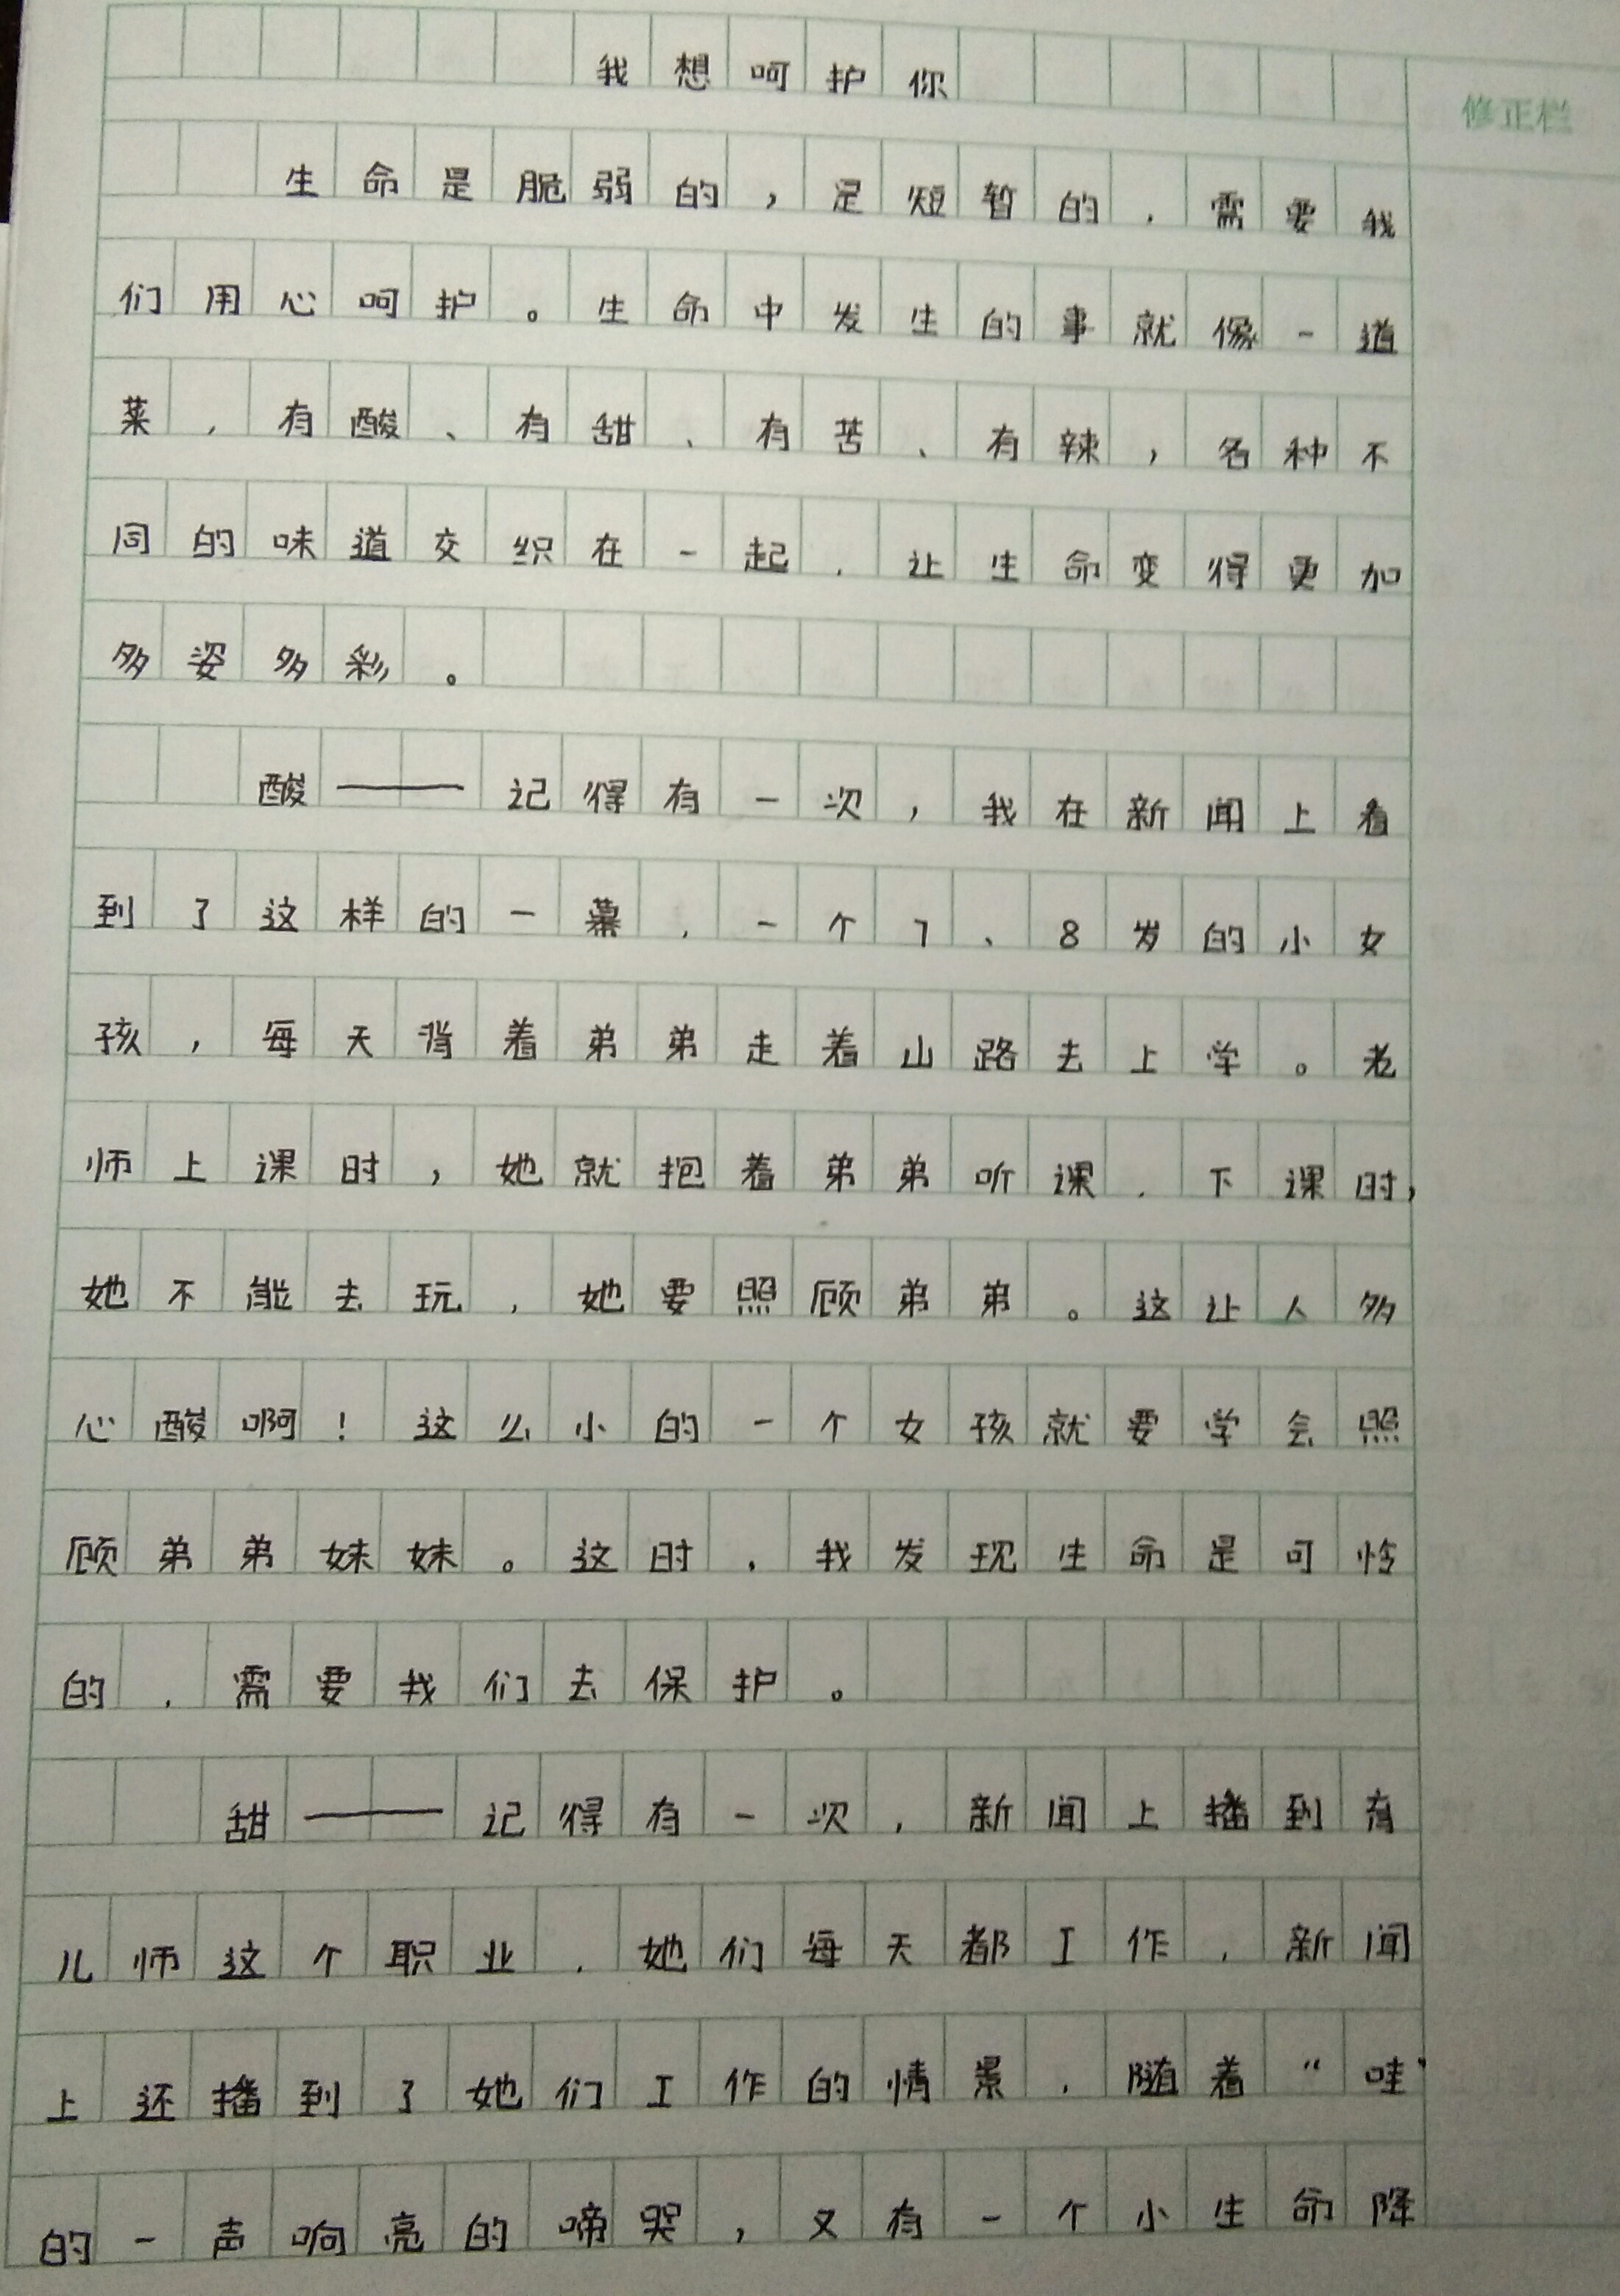 我想呵护你
修正栏
生命是脆弱的，是短暂的，需要我
们用心呵护。生命中发生的事就像一道
菜，有酸、有甜、有苦、有辣，各种不
同的味道交织在一起，让生命变得更加
多姿多彩。
酸——记得有一次，我在新闻上看
到了这样的一幕，一个7、8岁的小女
孩，每天背着弟弟走着山路去上学。老
师上课时，她就抱着弟弟听课，下课时，
她不能去玩，她要照顾弟弟。这让人多
心酸啊！这么小的一个女孩就要学会照
顾弟弟妹妹。这时，我发现生命是可怜
的，需要我们去保护。
甜——记得有一次，新闻上播到育
儿师这个职业，她们每天都工作，新闻
上还播到了她们工作的情景，随着“哇”
的一声响亮的啼哭，又有一个小生命降